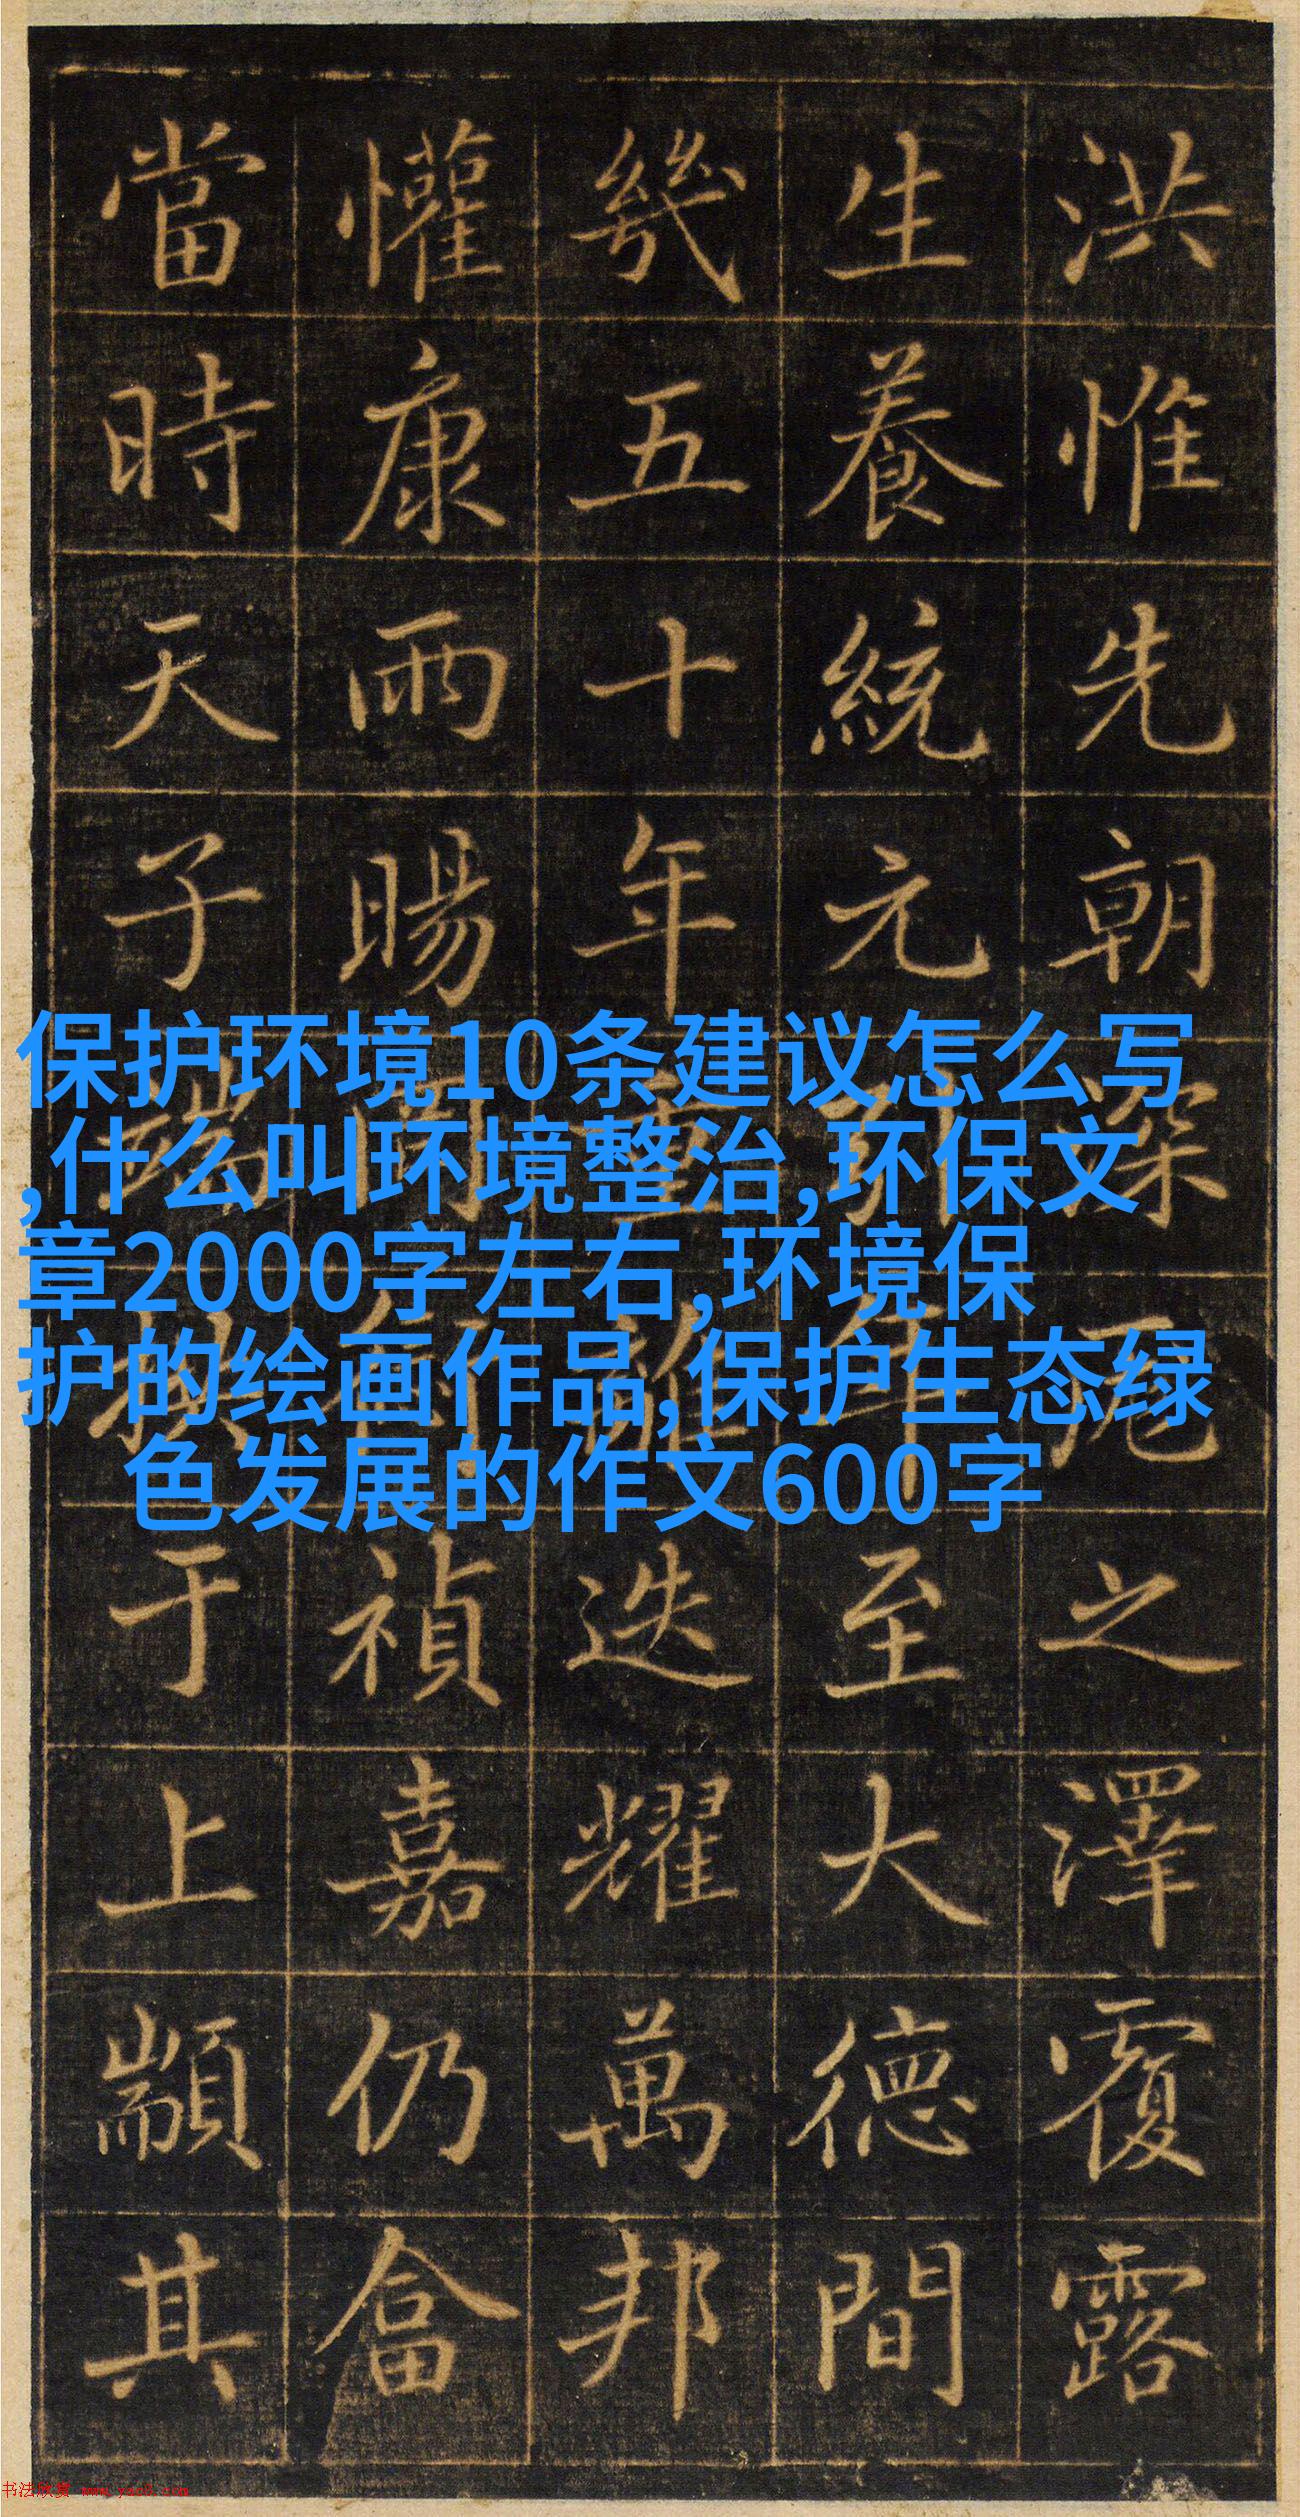 洪惟先朝深之澤覆露
生養統元至大德間
幾五十年重離迭耀萬邦
懽康雨暘禎嘉仍畬
當時天子端拱于上顒其
保护环境10条建议怎么写
,什么叫环境整治,环保文
章2000字左右,环境保
护的绘画作品,保护生态绿
色发展的作文600字
书法欣赏 www.yac8.com